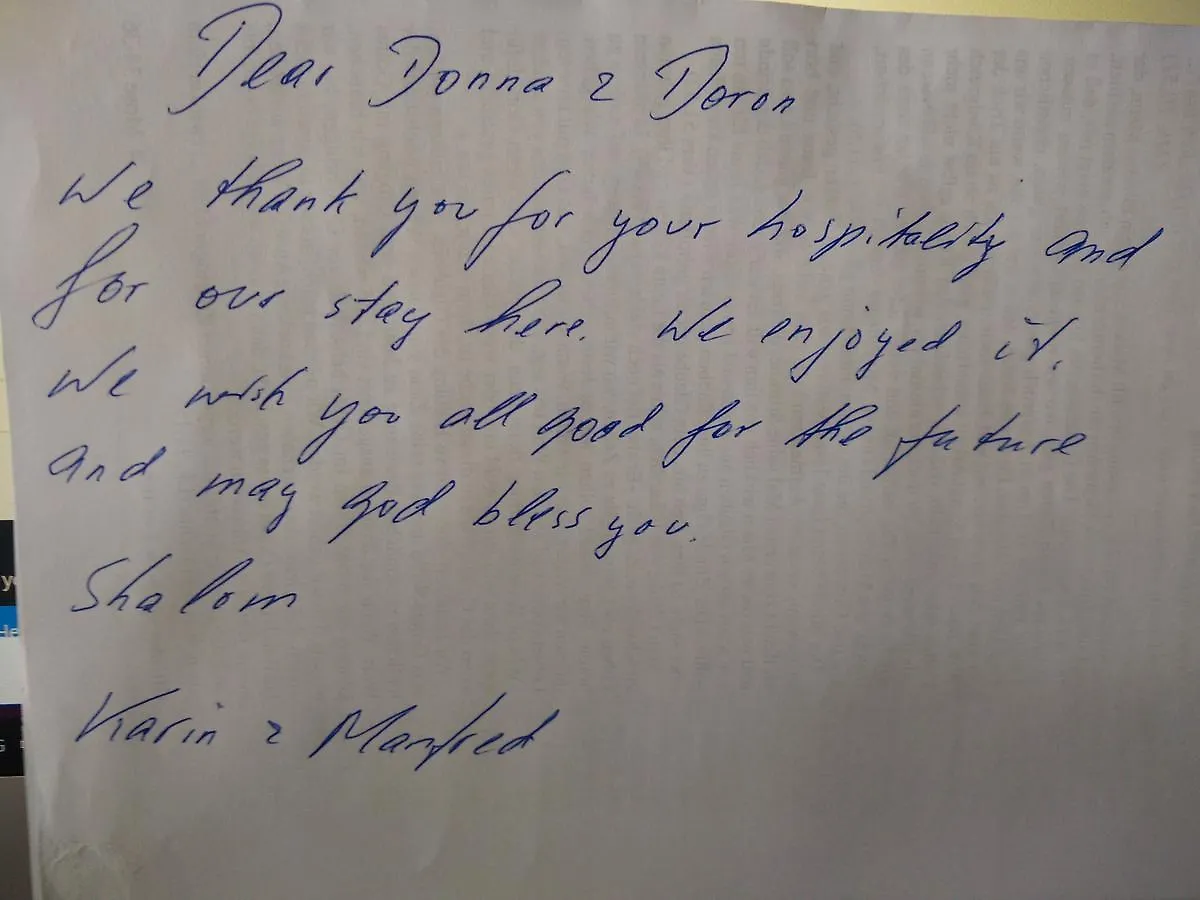 Dear Donna & Doron
We thank you for your hospitality and
for our stay here. We enjoyed it.
We wish you all good for the future
and may god bless you.
Shalom
Karin & Manfred